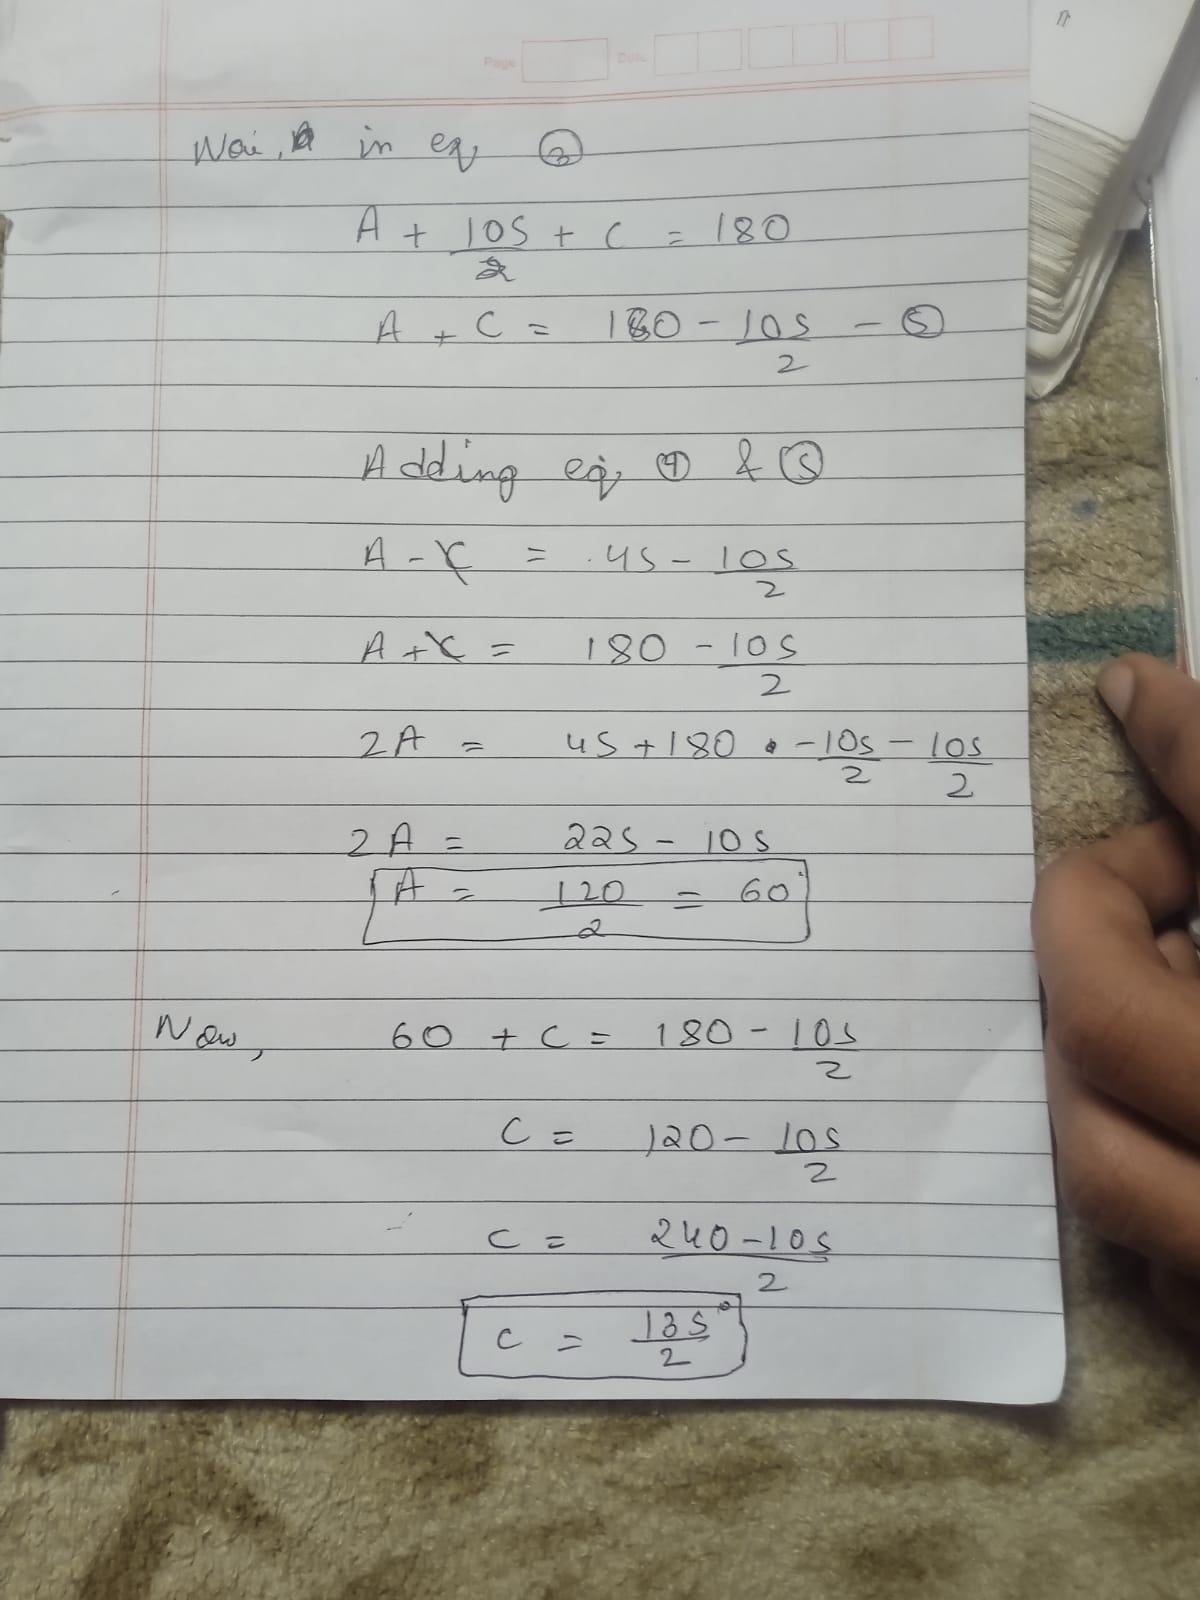 Page Date
in eq ③
A + 105/2 + C = 180
A + C = 180 - 105/2 - ⑤
Adding eq ④ & ⑤
A - C = 45 - 105/2
A + C = 180 - 105/2
2A = 45 + 180 - 105/2 - 105/2
2A = 225 - 105
A = 120/2 = 60°
Now, 60 + C = 180 - 105/2
C = 120 - 105/2
C = 240 - 105/2
C = 135°/2